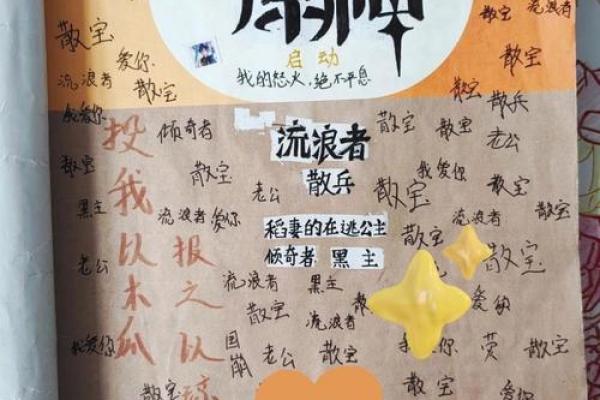 原神
启动
我的怒火,绝不平息
散宝
爱你
流浪者
散宝
我爱你
散宝
流浪者
散宝
散宝
散兵
投我以木瓜
报之以琼
倾奇者
流浪者
散兵
稻妻的在逃公主
倾奇者 黑主
散宝
散宝
老公
散宝
散宝
老公
我爱你
散宝
散宝
黑主
流浪者
爱你
流浪者
散宝
散宝
老公
流浪者
黑主
散宝
散宝
散宝
流浪者
爱你
国崩
我爱你
老公
散宝
你
爱
散宝
散宝
散宝
爱你